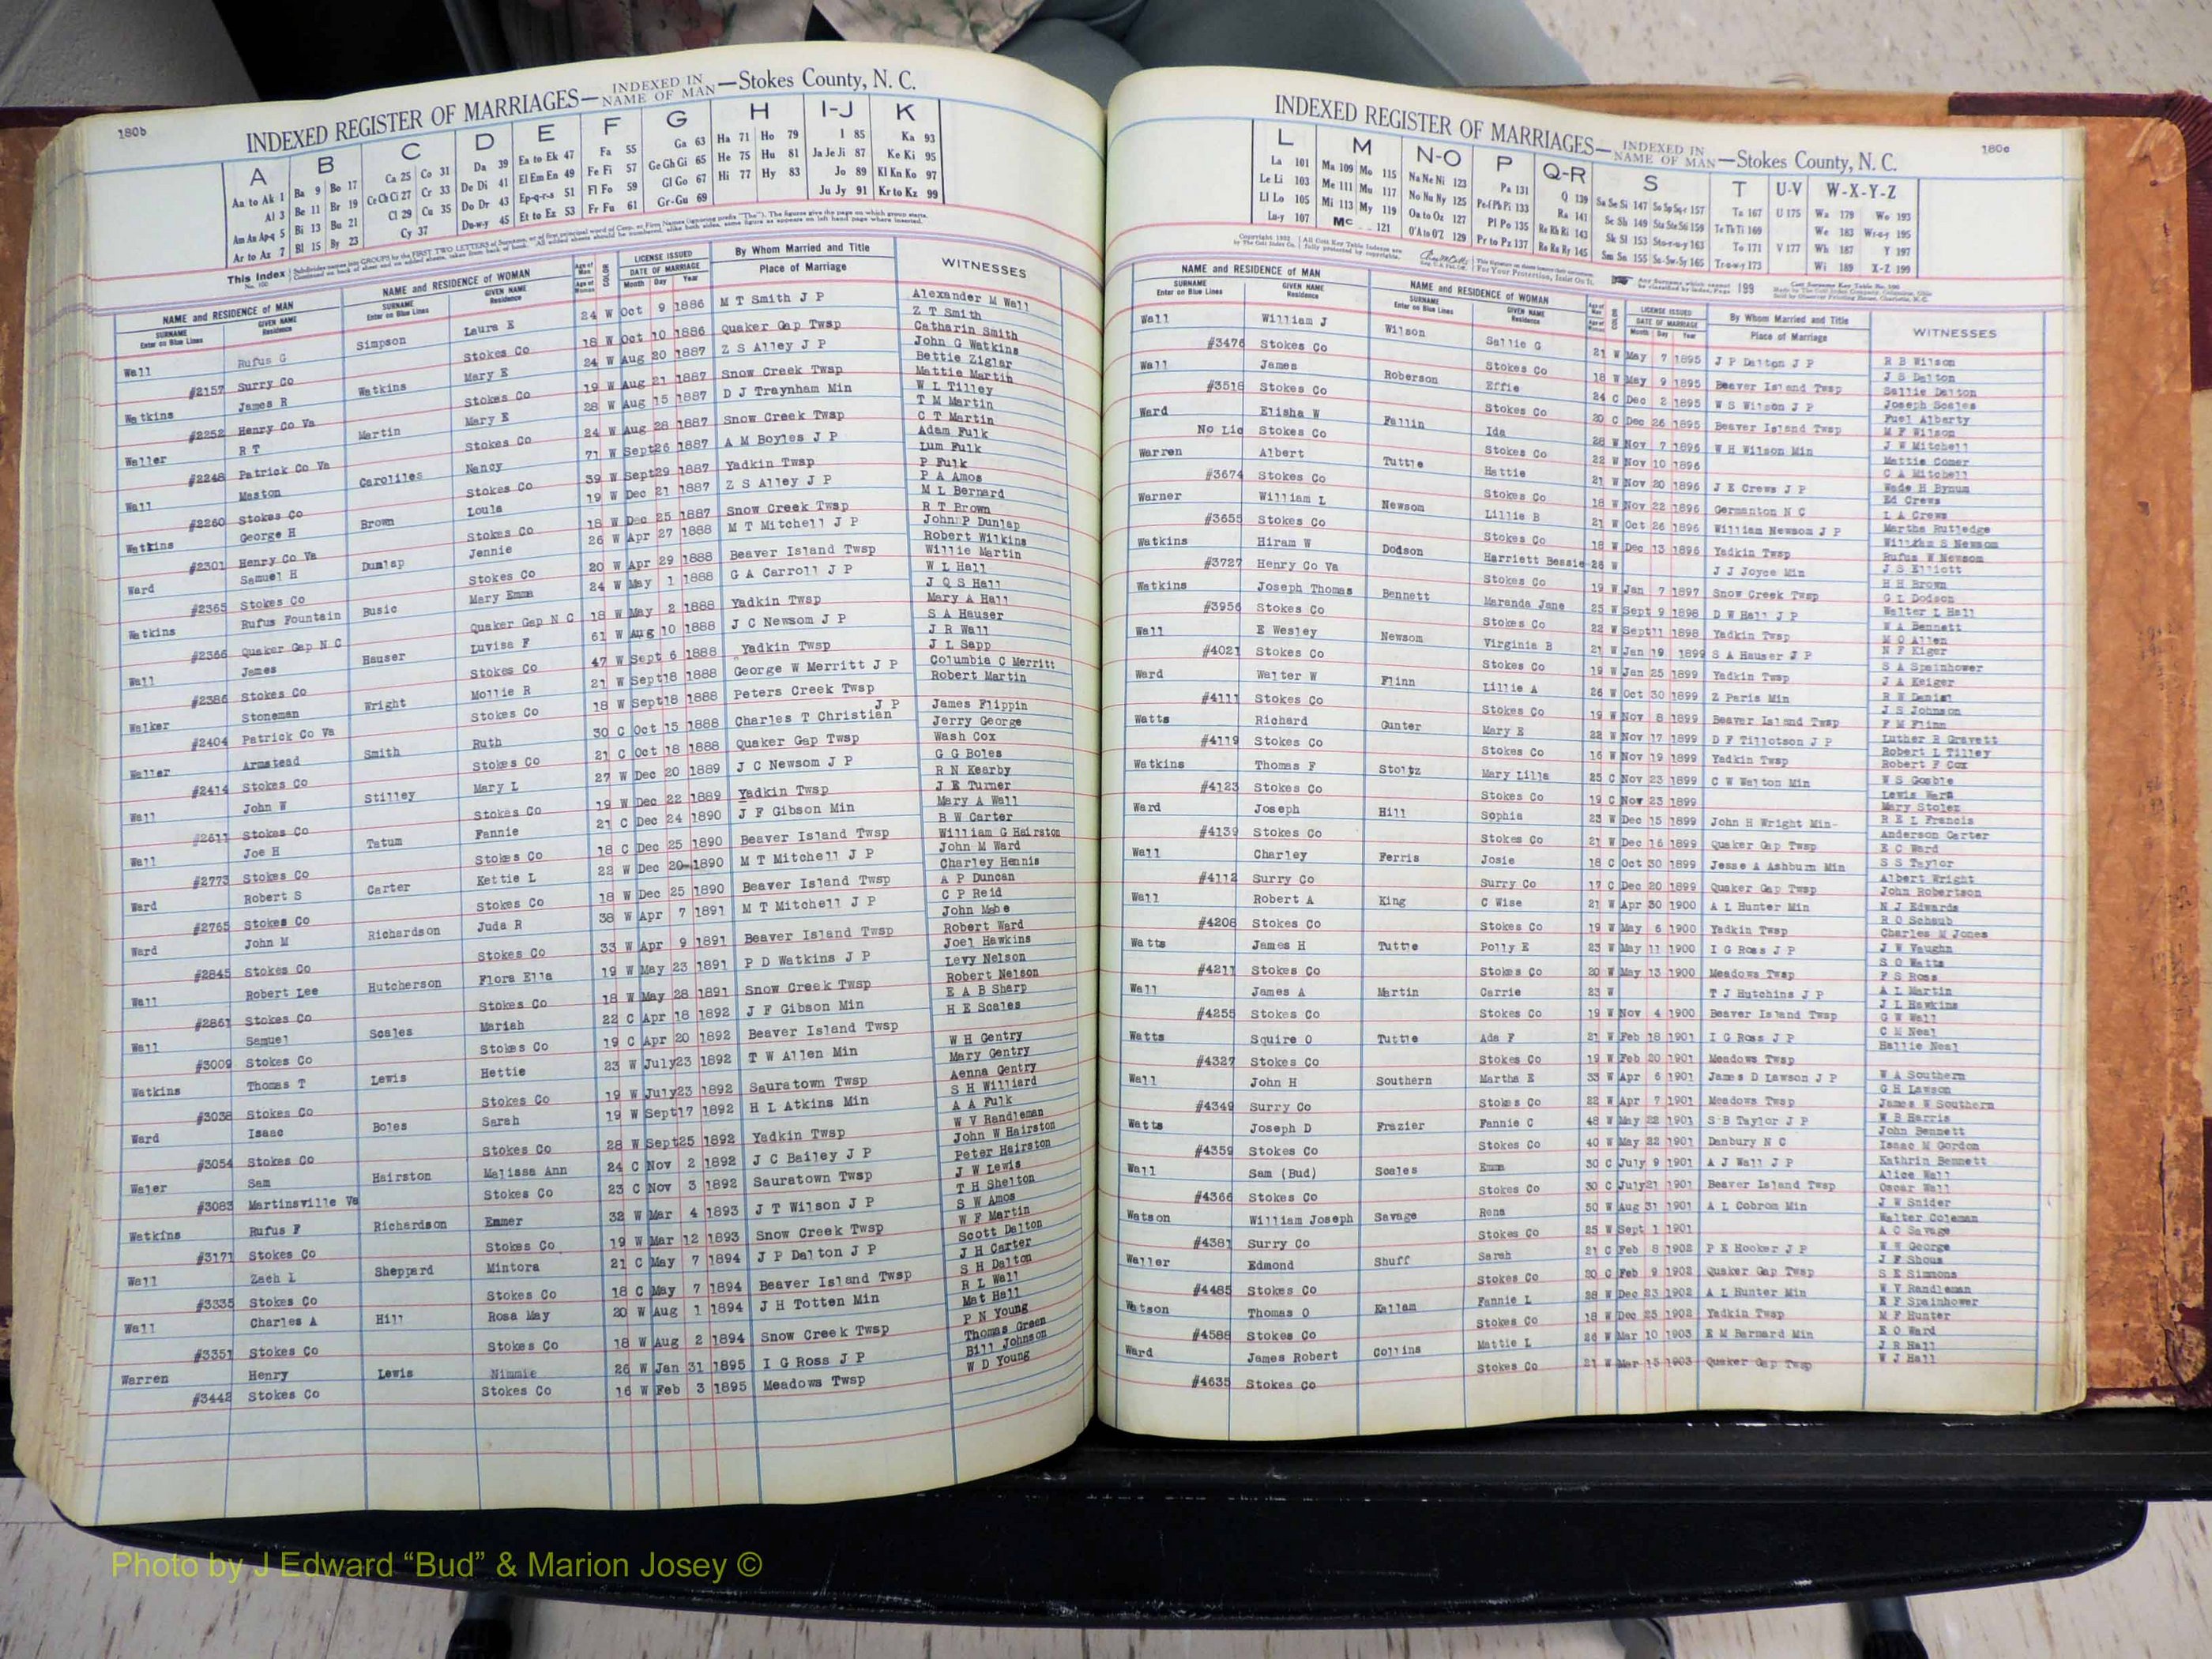 180b
INDEXED REGISTER OF MARRIAGES— INDEXED IN NAME OF MAN —Stokes County, N. C.
A B C D E F G H I-J K
Aa to Ak 1 Ba 9 Bo 17 Ca 25 Co 31 Da 39 Ea to Ek 47 Fa 55 Ga 63 Ha 71 Ho 79 I 85 Ka 93
Al 3 Be 11 Br 19 Ce Ch Ci 27 Cr 33 De Di 41 El Em En 49 Fe Fi 57 Ge Gh Gi 65 He 75 Hu 81 Ja Je Ji 87 Ke Ki 95
Am An Ap-q 5 Bi 13 Bu 21 Cl 29 Cu 35 Do Dr 43 Ep-q-r-s 51 Fl Fo 59 Gl Go 67 Hi 77 Hy 83 Jo 89 Kl Kn Ko 97
Ar to Az 7 Bl 15 By 23 Cy 37 Du-w-y 45 Et to Ez 53 Fr Fu 61 Gr-Gu 69 Ju Jy 91 Kr to Kz 99
This Index No. 100
NAME and RESIDENCE OF MAN NAME and RESIDENCE OF WOMAN LICENSE ISSUED By Whom Married and Title WITNESSES
SURNAME Enter on Blue Lines GIVEN NAME Residence SURNAME Enter on Blue Lines GIVEN NAME Residence Age of Man Age of Woman COLOR DATE OF MARRIAGE Month Day Year Place of Marriage
Wall Rufus G Simpson Laura E 24 W Oct 9 1886 M T Smith J P Alexander M Wall
Z T Smith
#2157 Surry Co Stokes Co 18 W Oct 10 1886 Quaker Gap Twsp Catharin Smith
Watkins James R Watkins Mary E 24 W Aug 20 1887 Z S Alley J P John G Watkins
Bettie Ziglar
#2252 Henry Co Va Stokes Co 19 W Aug 21 1887 Snow Creek Twsp Mattie Martin
Waller R T Martin Mary E 28 W Aug 15 1887 D J Traynham Min W L Tilley
T M Martin
#2248 Patrick Co Va Stokes Co 24 W Aug 28 1887 Snow Creek Twsp C T Martin
Wall Maston Caroliles Nancy 71 W Sept26 1887 A M Boyles J P Adam Fulk
Lum Fulk
#2260 Stokes Co Stokes Co 39 W Sept29 1887 Yadkin Twsp P Fulk
Watkins George H Brown Loula 19 W Dec 21 1887 Z S Alley J P P A Amos
M L Bernard
#2301 Henry Co Va Stokes Co 18 W Dec 25 1887 Snow Creek Twsp R T Brown
Ward Samuel H Dunlap Jennie 26 W Apr 27 1888 M T Mitchell J P John P Dunlap
Robert Wilkins
#2365 Stokes Co Stokes Co 20 W Apr 29 1888 Beaver Island Twsp Willie Martin
Watkins Rufus Fountain Busic Mary Emma 24 W May 1 1888 G A Carroll J P W L Hall
J Q S Hall
#2366 Quaker Gap N C Quaker Gap N C 18 W May 2 1888 Yadkin Twsp Mary A Hall
Wall James Hauser Luvisa F 61 W Aug 10 1888 J C Newsom J P S A Hauser
J R Wall
#2386 Stokes Co Stokes Co 47 W Sept 6 1888 Yadkin Twsp J L Sapp
Walker Stoneman Wright Mollie R 21 W Sept18 1888 George W Merritt J P Columbia C Merritt
#2404 Patrick Co Va Stokes Co 18 W Sept18 1888 Peters Creek Twsp Robert Martin
Waller Armstead Smith Ruth 30 C Oct 15 1888 Charles T Christian J P James Flippin
Jerry George
#2414 Stokes Co Stokes Co 21 C Oct 18 1888 Quaker Gap Twsp Wash Cox
Wall John W Stilley Mary L 27 W Dec 20 1889 J C Newsom J P G G Boles
R N Kearby
#2611 Stokes Co Stokes Co 19 W Dec 22 1889 Yadkin Twsp J E Turner
Wall Joe H Tatum Fannie 21 C Dec 24 1890 J F Gibson Min Mary A Wall
B W Carter
#2773 Stokes Co Stokes Co 18 C Dec 25 1890 Beaver Island Twsp William G Hairston
Ward Robert S Carter Kettie L 22 W Dec 20 1890 M T Mitchell J P John M Ward
Charley Hennis
#2765 Stokes Co Stokes Co 18 W Dec 25 1890 Beaver Island Twsp A P Duncan
Ward John M Richardson Juda R 38 W Apr 7 1891 M T Mitchell J P C P Reid
John Mabe
#2845 Stokes Co Stokes Co 33 W Apr 9 1891 Beaver Island Twsp Robert Ward
Wall Robert Lee Hutcherson Flora Ella 19 W May 23 1891 P D Watkins J P Joel Hawkins
Levy Nelson
#2861 Stokes Co Stokes Co 18 W May 28 1891 Snow Creek Twsp Robert Nelson
Wall Samuel Scales Mariah 22 C Apr 18 1892 J F Gibson Min E A B Sharp
#3009 Stokes Co Stokes Co 19 C Apr 20 1892 Beaver Island Twsp H E Scales
Watkins Thomas T Lewis Hettie 23 W July23 1892 T W Allen Min W H Gentry
Mary Gentry
#3038 Stokes Co Stokes Co 19 W July23 1892 Sauratown Twsp Aenna Gentry
Ward Isaac Boles Sarah 19 W Sept17 1892 H L Atkins Min S H Williard
A A Fulk
#3054 Stokes Co Stokes Co 28 W Sept25 1892 Yadkin Twsp W V Randleman
Waler Sam Hairston Malissa Ann 24 C Nov 2 1892 J C Bailey J P John W Hairston
#3083 Martinsville Va Stokes Co 23 C Nov 3 1892 Sauratown Twsp Peter Hairston
Watkins Rufus F Richardson Emmer 32 W Mar 4 1893 J T Wilson J P J W Lewis
T H Shelton
S W Amos
#3171 Stokes Co Stokes Co 19 W Mar 12 1893 Snow Creek Twsp W F Martin
Wall Zach L Sheppard Mintora 21 C May 7 1894 J P Dalton J P Scott Dalton
J H Carter
#3335 Stokes Co Stokes Co 18 C May 7 1894 Beaver Island Twsp S H Dalton
Wall Charles A Hill Rosa May 20 W Aug 1 1894 J H Totten Min R L Wall
Mat Hall
#3351 Stokes Co Stokes Co 18 W Aug 2 1894 Snow Creek Twsp P N Young
Warren Henry Lewis Nimmie 26 W Jan 31 1895 I G Ross J P Thomas Green
Bill Johnson
#3442 Stokes Co Stokes Co 16 W Feb 3 1895 Meadows Twsp W D Young
180c
INDEXED REGISTER OF MARRIAGES— INDEXED IN NAME OF MAN —Stokes County, N. C.
L M N-O P Q-R S T U-V W-X-Y-Z
La 101 Ma 109 Mo 115 Na Ne Ni 123 Pa 131 Q 139 Sa Se Si 147 So Sp Sq-r 157 Ta 167 U 175 Wa 179 Wo 193
Le Li 103 Me 111 Mu 117 No Nu Ny 125 Pe-f Ph Pi 133 Ra 141 Sc Sh 149 Sta Ste Sti 159 Te Th Ti 169 We 183 Wr-u-y 195
Ll Lo 105 Mi 113 My 119 Oa to Oz 127 Pl Po 135 Re Rh Ri 143 Sk Sl 153 Sto-r-u-y 163 To 171 V 177 Wh 187 Y 197
Lu-y 107 Mc 121 O'A to O'Z 129 Pr to Pz 137 Ro Ru Ry 145 Sm Sn 155 Su-Sw-Sy 165 Tr-u-w-y 173 Wi 189 X-Z 199
NAME and RESIDENCE OF MAN NAME and RESIDENCE OF WOMAN LICENSE ISSUED By Whom Married and Title WITNESSES
SURNAME Enter on Blue Lines GIVEN NAME Residence SURNAME Enter on Blue Lines GIVEN NAME Residence DATE OF MARRIAGE Month Day Year Place of Marriage
Wall William J Wilson Sallie G 21 W May 7 1895 J P Dalton J P R B Wilson
J S Dalton
#3476 Stokes Co Stokes Co 18 W May 9 1895 Beaver Island Twsp Sallie Dalton
Wall James Roberson Effie 24 C Dec 2 1895 W S Wilson J P Joseph Scales
Fuel Alberty
#3518 Stokes Co Stokes Co 20 C Dec 26 1895 Beaver Island Twsp M F Wilson
Ward Elisha W Fallin Ida 28 W Nov 7 1896 W H Wilson Min J W Mitchell
Mattie Comer
No Lic Stokes Co Stokes Co 22 W Nov 10 1896 C A Mitchell
Warren Albert Tuttle Hattie 21 W Nov 20 1896 J E Crews J P Wade H Bynum
Ed Crews
#3674 Stokes Co Stokes Co 18 W Nov 22 1896 Germanton N C L A Crews
Warner William L Newsom Lillie B 21 W Oct 26 1896 William Newsom J P Martha Rutledge
William S Newsom
#3655 Stokes Co Stokes Co 18 W Dec 13 1896 Yadkin Twsp Rufus W Newsom
Watkins Hiram W Dodson Harriett Bessie 26 W J J Joyce Min J S Elliott
H H Brown
#3727 Henry Co Va Stokes Co 19 W Jan 7 1897 Snow Creek Twsp G L Dodson
Watkins Joseph Thomas Bennett Maranda Jane 25 W Sept 9 1898 D W Hall J P Walter L Hall
W A Bennett
#3956 Stokes Co Stokes Co 22 W Sept11 1898 Yadkin Twsp M O Allen
Wall E Wesley Newsom Virginia B 21 W Jan 19 1899 S A Hauser J P N F Kiger
S A Spainhower
#4021 Stokes Co Stokes Co 19 W Jan 25 1899 Yadkin Twsp J A Keiger
Ward Walter W Flinn Lillie A 26 W Oct 30 1899 Z Paris Min R W Daniel
J S Johnson
#4111 Stokes Co Stokes Co 19 W Nov 8 1899 Beaver Island Twsp F M Flinn
Watts Richard Gunter Mary E 22 W Nov 17 1899 D F Tillotson J P Luther R Gravett
Robert L Tilley
#4119 Stokes Co Stokes Co 16 W Nov 19 1899 Yadkin Twsp Robert F Cox
Watkins Thomas F Stoltz Mary Lilla 25 C Nov 23 1899 C W Walton Min W S Goable
Lewis Ward
#4123 Stokes Co Stokes Co 19 C Nov 23 1899 Mary Stolez
Ward Joseph Hill Sophia 23 W Dec 15 1899 John H Wright Min R E L Francis
Anderson Carter
#4139 Stokes Co Stokes Co 21 W Dec 16 1899 Quaker Gap Twsp E C Ward
Wall Charley Ferris Josie 18 C Oct 30 1899 Jesse A Ashburn Min S S Taylor
Albert Wright
#4112 Surry Co Surry Co 17 C Dec 20 1899 Quaker Gap Twsp John Robertson
Wall Robert A King C Wise 21 W Apr 30 1900 A L Hunter Min N J Edwards
R O Schaub
#4208 Stokes Co Stokes Co 19 W May 6 1900 Yadkin Twsp Charles M Jones
Watts James H Tuttle Polly E 23 W May 11 1900 I G Ross J P J W Vaughn
S O Watts
#4211 Stokes Co Stokes Co 20 W May 13 1900 Meadows Twsp F S Ross
Wall James A Martin Carrie 23 W T J Hutchins J P A L Martin
J L Hawkins
#4255 Stokes Co Stokes Co 19 W Nov 4 1900 Beaver Island Twsp G W Wall
Watts Squire O Tuttle Ada F 21 W Feb 18 1901 I G Ross J P C M Neal
Hallie Neal
#4327 Stokes Co Stokes Co 19 W Feb 20 1901 Meadows Twsp
Wall John H Southern Martha E 33 W Apr 6 1901 James D Lawson J P W A Southern
G H Lawson
#4349 Surry Co Stokes Co 22 W Apr 7 1901 Meadows Twsp James W Southern
Watts Joseph D Frazier Fannie C 48 W May 22 1901 S B Taylor J P W B Harris
John Bennett
#4359 Stokes Co Stokes Co 40 W May 22 1901 Danbury N C Isaac M Gordon
Wall Sam (Bud) Scales Emma 30 C July 9 1901 A J Wall J P Kathrin Bennett
Alice Wall
#4366 Stokes Co Stokes Co 30 C July21 1901 Beaver Island Twsp Oscar Wall
Watson William Joseph Savage Rena 50 W Aug 31 1901 A L Cobrom Min J W Snider
Walter Coleman
#4381 Surry Co Stokes Co 25 W Sept 1 1901 A C Savage
Waller Edmond Shuff Sarah 21 C Feb 8 1902 P E Hooker J P W W George
J F Shous
#4485 Stokes Co Stokes Co 20 C Feb 9 1902 Quaker Gap Twsp S E Simmons
Watson Thomas O Kallam Fannie L 28 W Dec 23 1902 A L Hunter Min W V Randleman
E F Spainhower
#4588 Stokes Co Stokes Co 18 W Dec 25 1902 Yadkin Twsp M F Hunter
Ward James Robert Collins Mattie L 26 W Mar 10 1903 E M Barnard Min E O Ward
J R Hall
#4635 Stokes Co Stokes Co 21 W Mar 15 1903 Quaker Gap Twsp W J Hall
Photo by J Edward “Bud” & Marion Josey ©